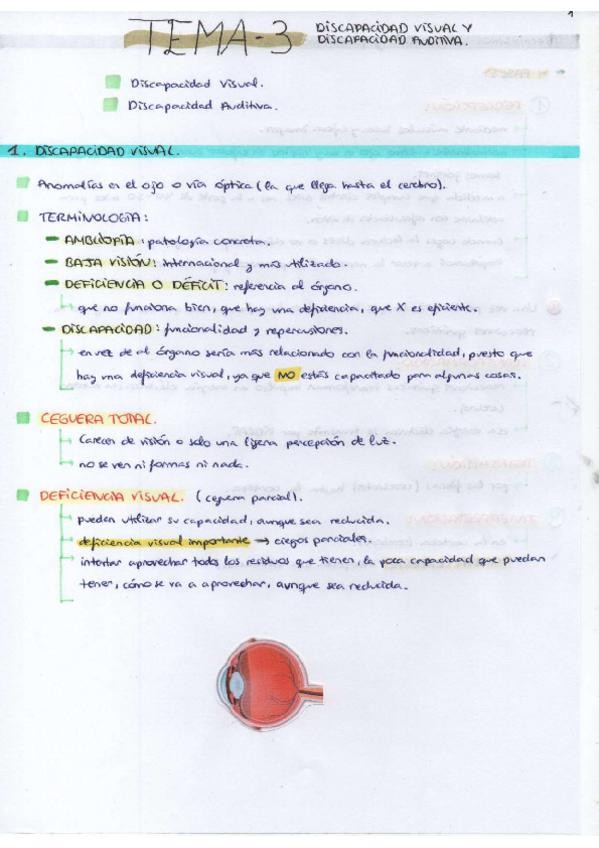 1
TEMA-3 DISCAPACIDAD VISUAL Y
DISCAPACIDAD AUDITIVA.
Discapacidad Visual.
Discapacidad Auditiva.
1. DISCAPACIDAD VISUAL.
Anomalías en el ojo o vía óptica (la que llega hasta el cerebro).
TERMINOLOGIA:
AMBLIOPÍA: patología concreta.
BAJA VISIÓN: internacional y más utilizado.
DEFICIENCIA O DÉFICIT: referencia al órgano.
que no funciona bien, que hay una deficiencia, que X es eficiente.
DISCAPACIDAD: funcionalidad y repercusiones.
en vez de al órgano sería más relacionado con la funcionalidad, puesto que
hay una deficiencia visual, ya que NO estás capacitado para algunas cosas.
CEGUERA TOTAL.
Carecer de visión o solo una ligera percepción de luz.
no se ven ni formas ni nada.
DEFICIENCIA VISUAL. (ceguera parcial).
pueden utilizar su capacidad, aunque sea reducida.
deficiencia visual importante → ciegos parciales.
intentar aprovechar todos los residuos que tienen, la poca capacidad que puedan
tener, cómo se va a aprovechar, aunque sea reducida.